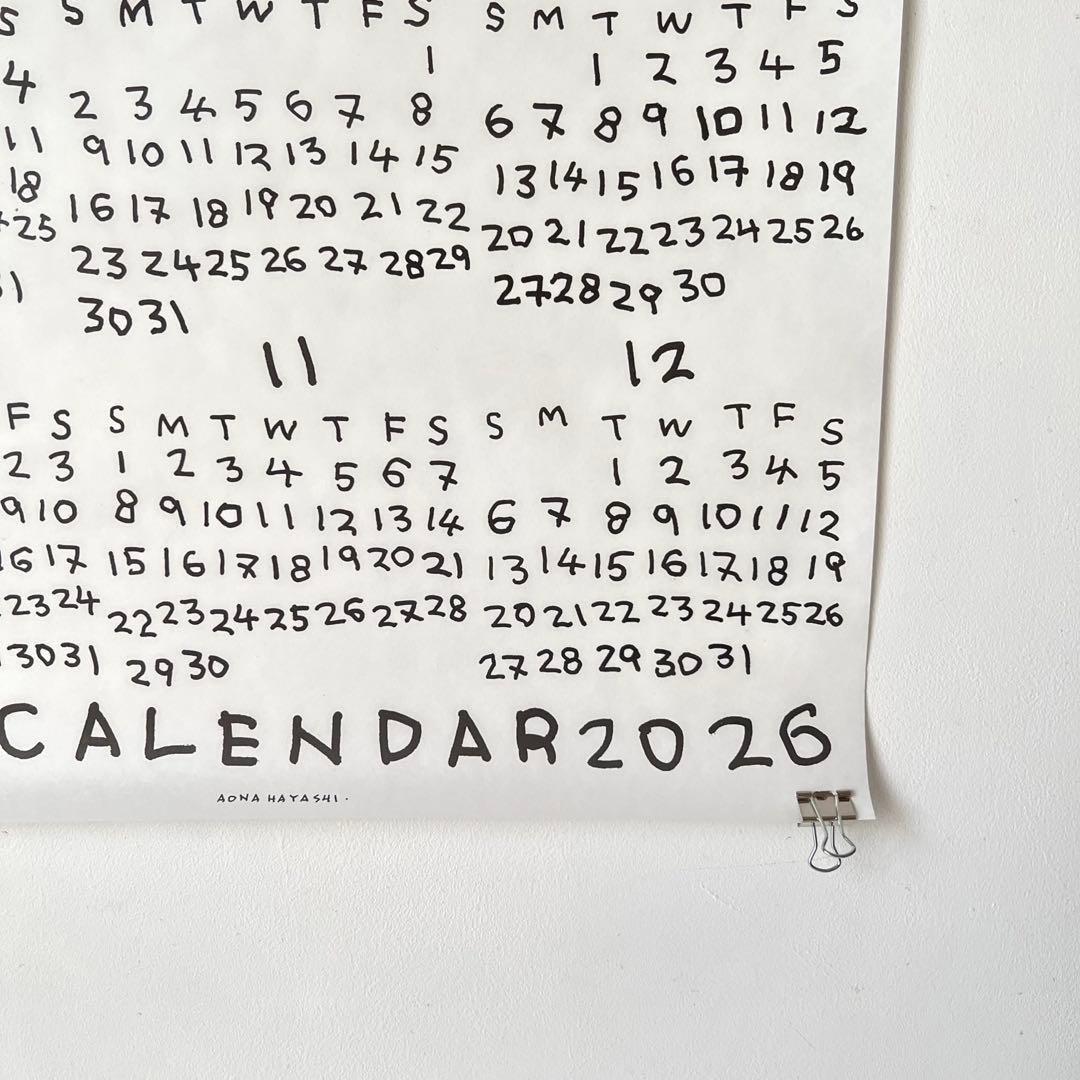 S S M T W T F S S M T W T F S
1 1 2 3 4 5
4 2 3 4 5 6 7 8 6 7 8 9 10 11 12
11 9 10 11 12 13 14 15 13 14 15 16 17 18 19
18 16 17 18 19 20 21 22 20 21 22 23 24 25 26
25 23 24 25 26 27 28 29 27 28 29 30
30 31
11 12
F S S M T W T F S S M T W T F S
2 3 1 2 3 4 5 6 7 1 2 3 4 5
9 10 8 9 10 11 12 13 14 6 7 8 9 10 11 12
16 17 15 16 17 18 19 20 21 13 14 15 16 17 18 19
23 24 22 23 24 25 26 27 28 20 21 22 23 24 25 26
30 31 29 30 27 28 29 30 31
CALENDAR 2026
AONA HAYASHI.